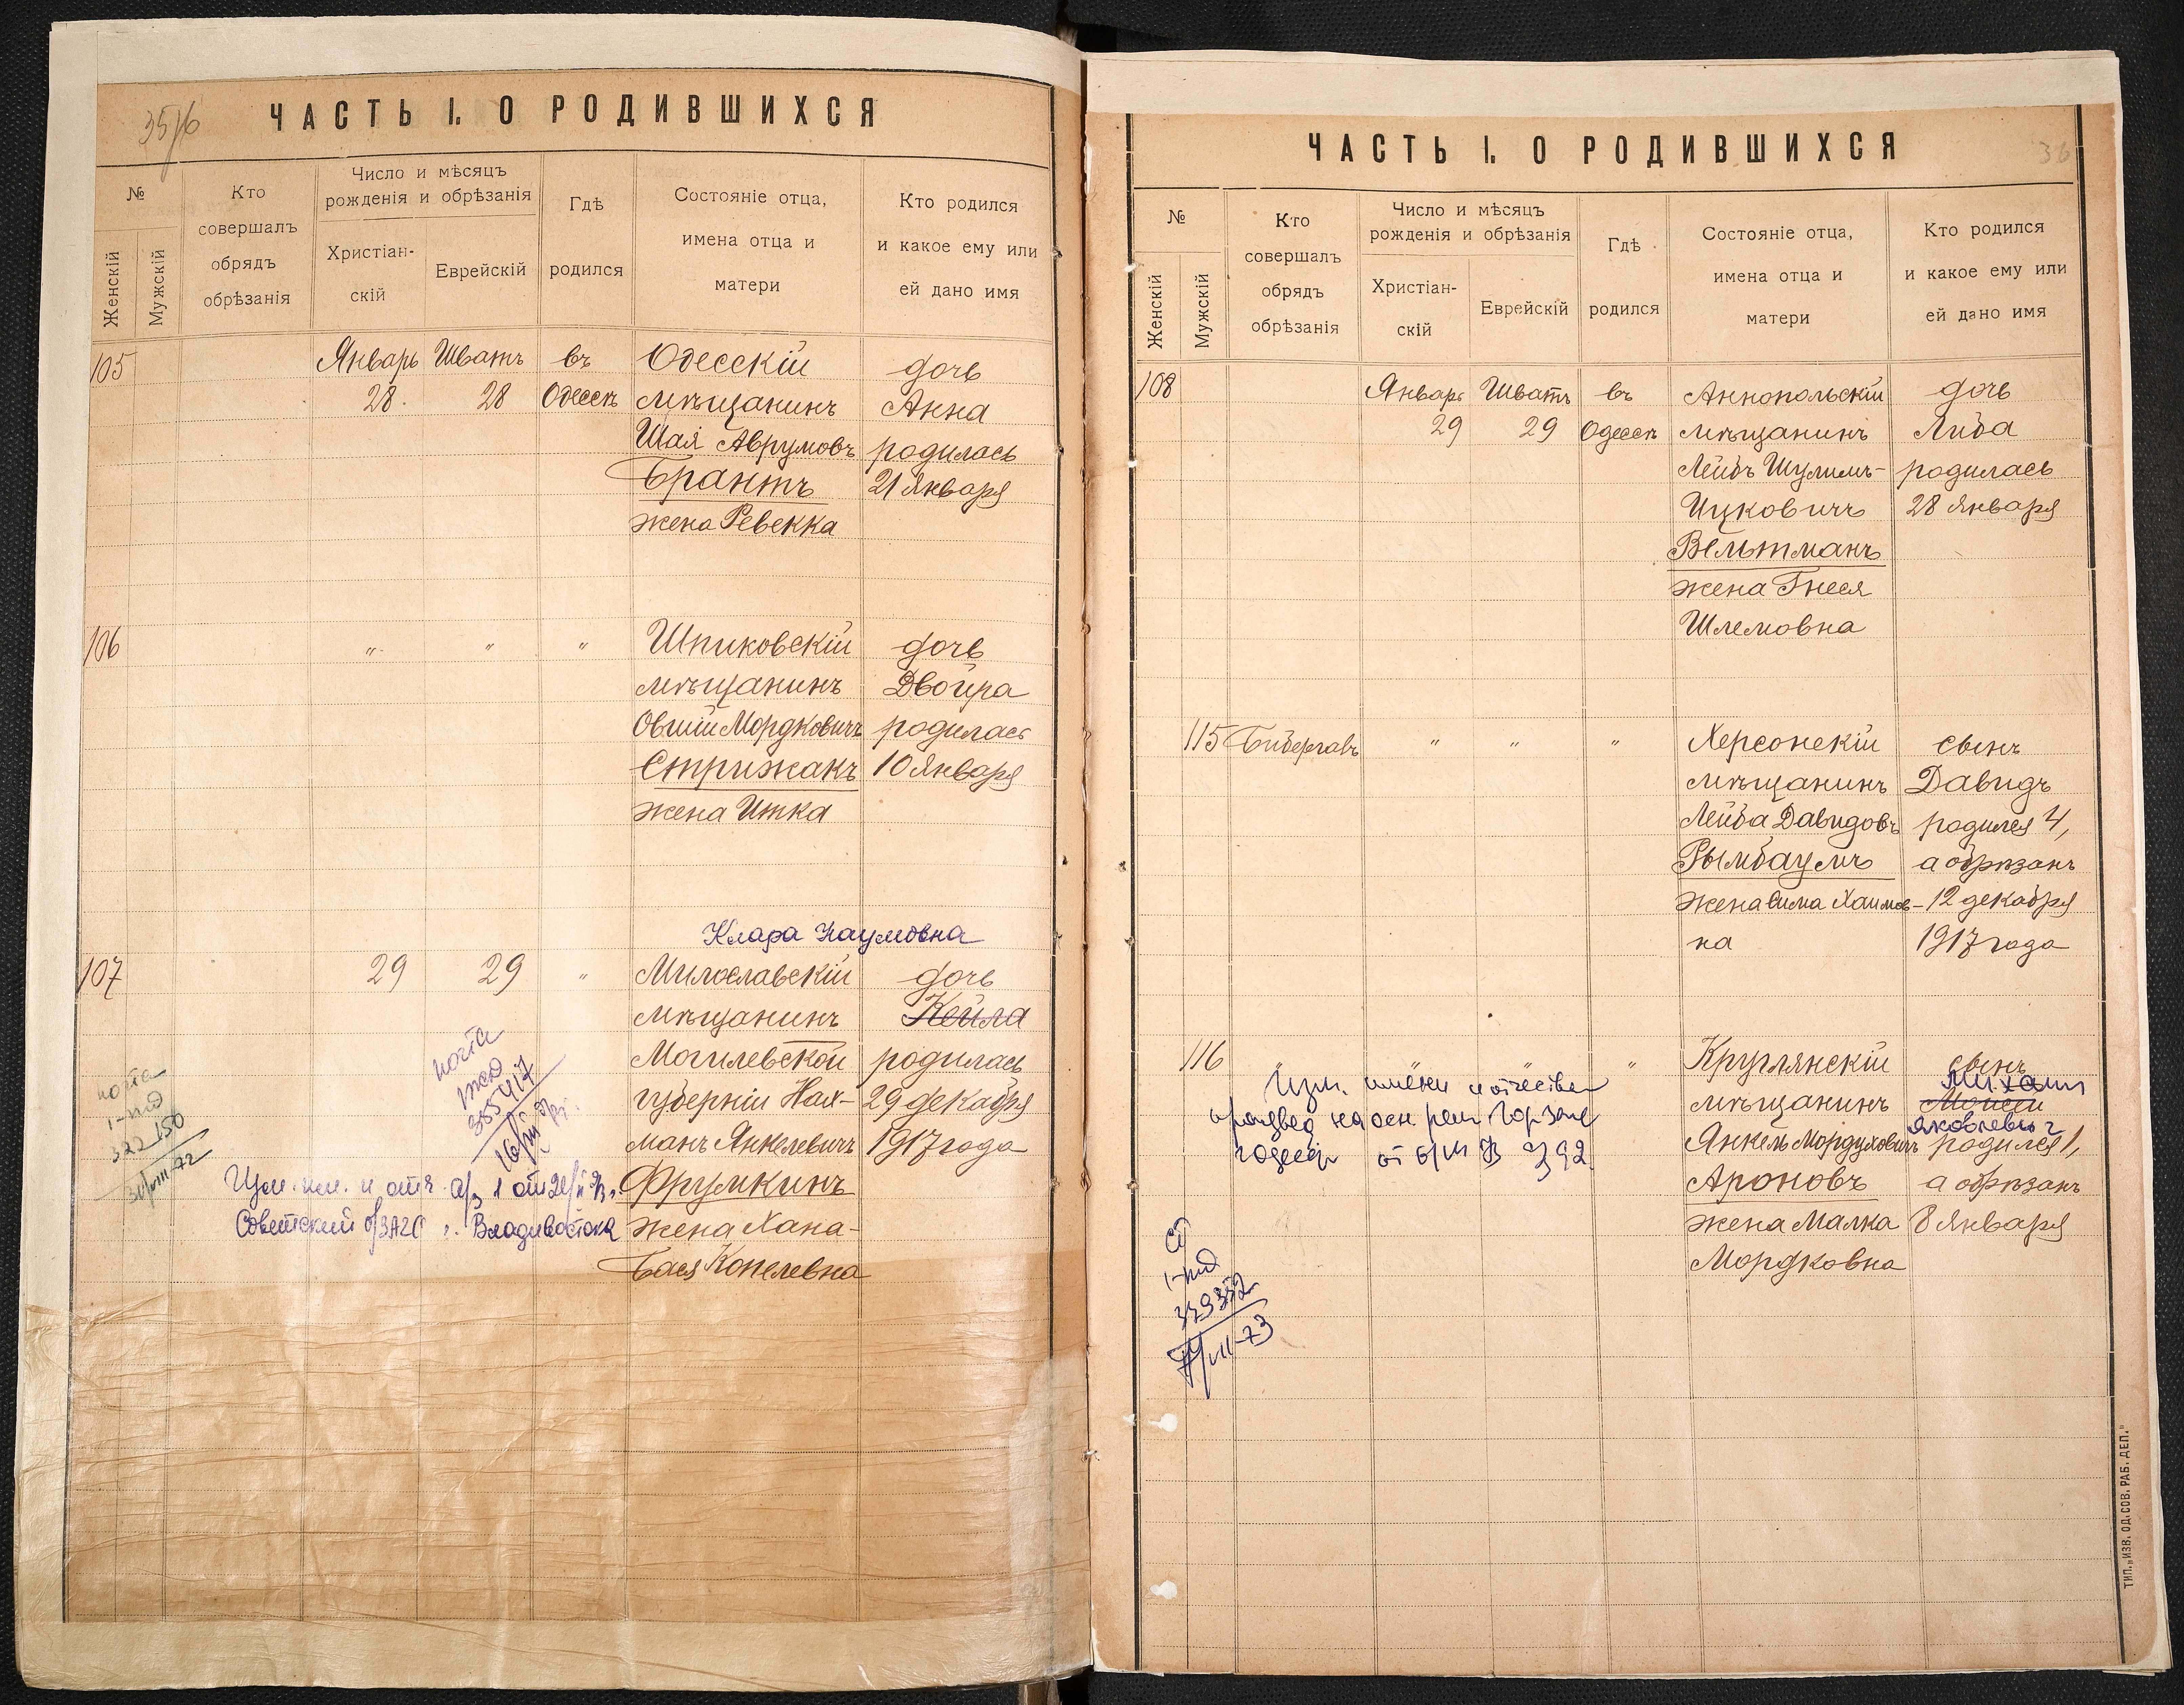 35/б
ЧАСТЬ I. О РОДИВШИХСЯ
№
Женскій
Мужскій
Кто
совершалъ
обрядъ
обрѣзанія
Число и мѣсяцъ
рожденія и обрѣзанія
Христіан-
скій
Еврейскій
Гдѣ
родился
Состояніе отца,
имена отца и
матери
Кто родился
и какое ему или
ей дано имя
105
Январь
28.
Шватъ
28
въ
Одессѣ
Одесскій
мѣщанинъ
Шая Аврумовъ
Брантъ
жена Ревекка
дочь
Анна
родилась
21 Января
106
"
"
"
Шпиковскій
мѣщанинъ
Овшій Мордковичъ
Стрижакъ
жена Итка
дочь
Двойра
родилась
10 Января
Клара Наумовна
107
29
29
"
Милославскій
мѣщанинъ
Могилевской
губерніи Нах-
манъ Янкелевичъ
Фрумкинъ
жена Хана-
Бася Копелевна
дочь
Кейла
родилась
29 декабря
1917 года
почта
355417
почта
322150
31/VIII-72
Изм. им. и отч. а/з 1 от
Советский о/ЗАГС г. Владивостока
ЧАСТЬ I. О РОДИВШИХСЯ
36
№
Женскій
Мужскій
Кто
совершалъ
обрядъ
обрѣзанія
Число и мѣсяцъ
рожденія и обрѣзанія
Христіан-
скій
Еврейскій
Гдѣ
родился
Состояніе отца,
имена отца и
матери
Кто родился
и какое ему или
ей дано имя
108
Январь
29
Шватъ
29
въ
Одессѣ
Аннопольскій
мѣщанинъ
Лейбъ Шулимъ-
Ицковичъ
Вельтманъ
жена Гнеся
Шлемовна
дочь
Люба
родилась
28 Января
115
Бибергалъ
"
"
"
Херсонскій
мѣщанинъ
Лейба Давидовъ
Рымбаумъ
жена Сима Хаимов-
на
сынъ
Давидъ
родился 4,
а обрѣзанъ
12 декабря
1917 года
116
"
"
"
"
Круглянскій
мѣщанинъ
Янкель Мордуховичъ
Ароновъ
жена Малка
Мордковна
сынъ
Михаил
Моисей
Яковлевич
родился 1,
а обрѣзанъ
8 Января
Изм. имени и отчества
произвед на осн. реш. Горзагс
г Одессы от
329352
VII-73
ТИП. „ИЗВ. ОД. СОВ. РАБ. ДЕП."